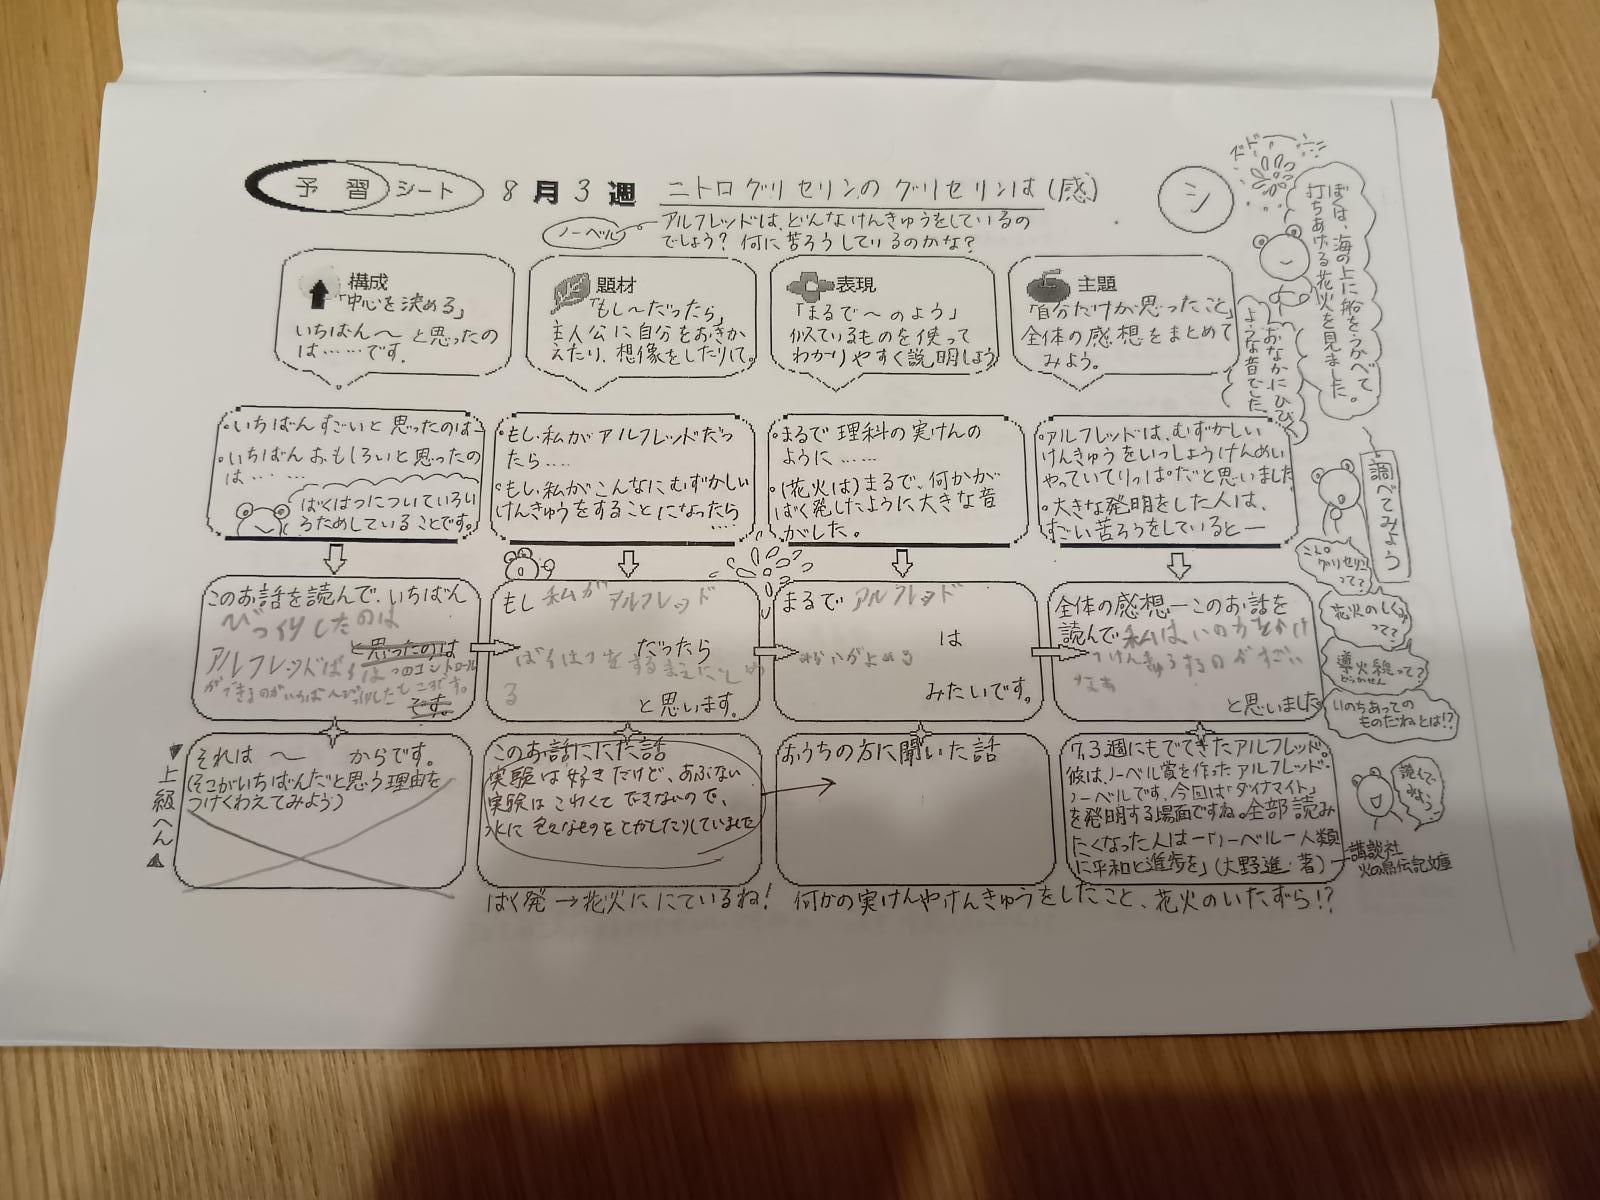 予習シート 8月3週 ニトログリセリンのグリセリンは(感)
シ
ノーベル
アルフレッドは、どんなけんきゅうをしているの
でしょう?何に苦ろうしているのかな?
構成
「中心を決める」
いちばん〜と思ったの
は……です。
題材
「もし〜だったら」
主人公に自分をおきか
えたり、想像をしたりして。
表現
「まるで〜のよう」
似ているものを使って
わかりやすく説明しよう
主題
「自分だけが思ったこと」
全体の感想をまとめて
みよう。
ドド
ぼくは、海の上に船をうかべて。
打ちあげる花火を見ました。
おなかにひびく
ような音でした。
・いちばんすごいと思ったのは—
・いちばんおもしろいと思ったの
は……
ばくはつについていろい
ろためしていることです。
・もし私がアルフレッドだっ
たら….
・もし、私がこんなにむずかしい
けんきゅうをすることになったら
….
・まるで理科の実けんの
ように……
・(花火は)まるで、何かが
ばく発したように大きな音
がした。
・アルフレッドは、むずかしい
けんきゅうをいっしょうけんめい
やっていてりっぱだと思いました
・大きな発明をした人は、
すごい苦ろうをしていると—
調べてみよう
ニトロ
グリセリン
って?
花火のしくみ
って?
導火線って?
どうかせん
いのちあっての
ものだねとは!?
このお話を読んで、いちばん
びっくりしたのは
と思ったのは
アルフレッドばくはつのコントロール
ができるのがいちばんびっくりしたところです。
です。
もし私がアルフレッド
だったら
ばくはつをするまえに
る
と思います。
まるでアルフレッド
は
みたいです。
全体の感想—このお話を
読んで私は、いのちをかけ
てけんきゅうするのがすごい
なあ
と思いました
上級へん
それは〜からです。
(そこがいちばんだと思う理由を
つけくわえてみよう)
このお話ににた話
実験は好きだけど、あぶない
実験はこわくてできないので、
水に色々なものをとかしたりしていました
おうちの方に聞いた話
7.3週にもでてきたアルフレッド。
彼は、ノーベル賞を作ったアルフレッド・
ノーベルです。今回は「ダイナマイト」
を発明する場面ですね。全部読み
たくなった人は—「ノーベル—人類
に平和と進歩を」(大野進・著)
読んで
みよう
講談社
火の鳥伝記文庫
ばく発→花火ににているね! 何かの実けんやけんきゅうをしたこと、花火のいたずら!?